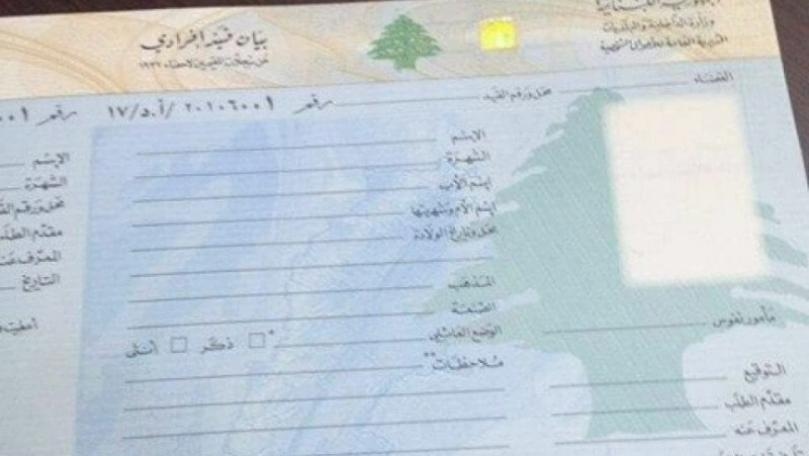 الجمهورية اللبنانية
وزارة الداخلية والبلديات
المديرية العامة للأحوال الشخصية
بيان قيد إفرادي
عن سجلات المقيمين لإحصاء ١٩٣٢
القضاء
محل ورقم القيد
رقم ٢٠١٠٦٠٠١ /أ.د/١٧
رقم
الإسم
الشهرة
إسم الأب
إسم الأم وشهرتها
محل وتاريخ الولادة
المذهب
الصنعة
الوضع العائلي
* ذكر
أنثى
ملاحظات**
مأمور نفوس
التوقيع
مقدّم الطلب
المعرّف عنه
الإسم
الشهرة
محل ورقم
مقدّم الطلب
المعرّف عنه
التاريخ